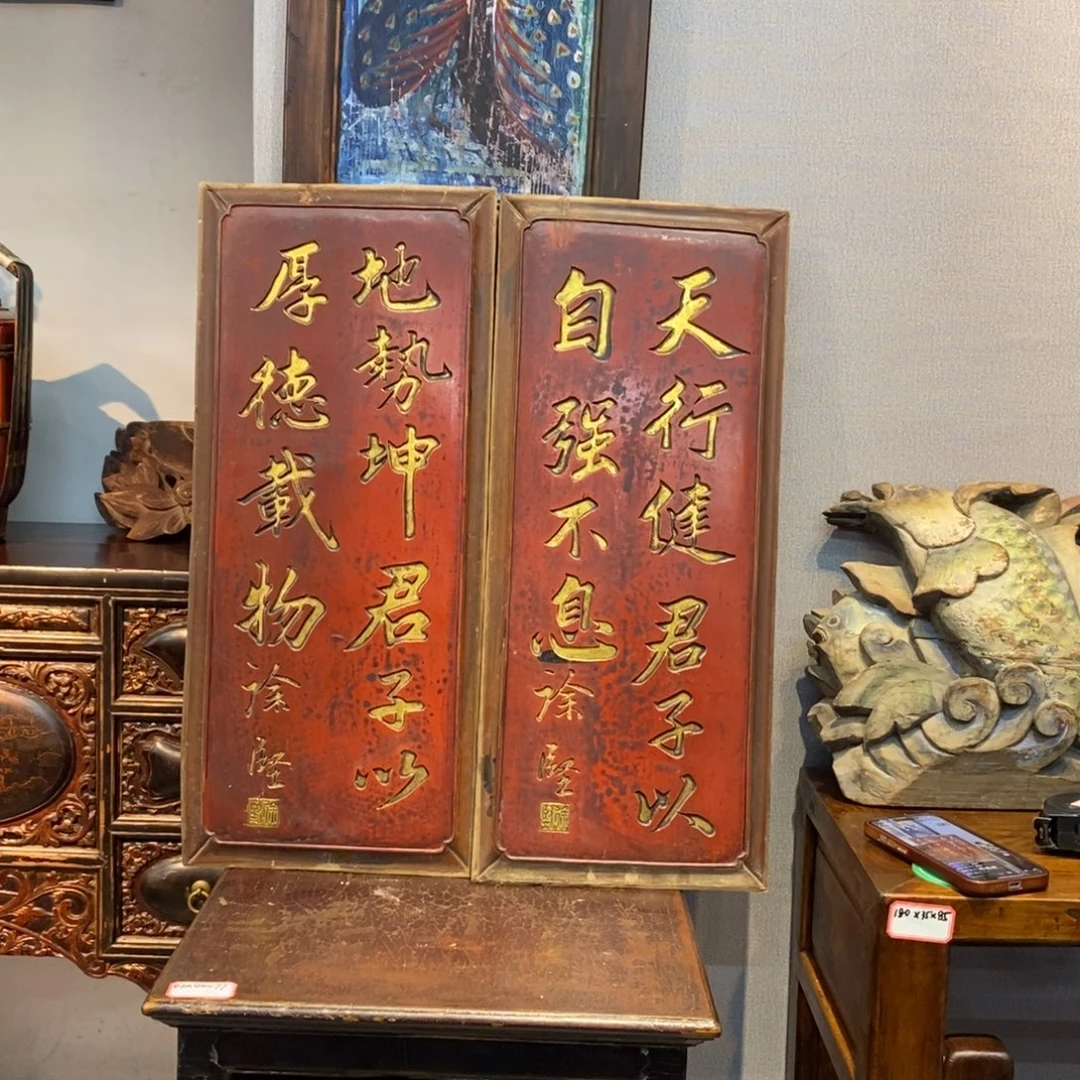 天行健君子以
自强不息
徐堅
地勢坤君子以
厚德載物
徐堅
180×35×85